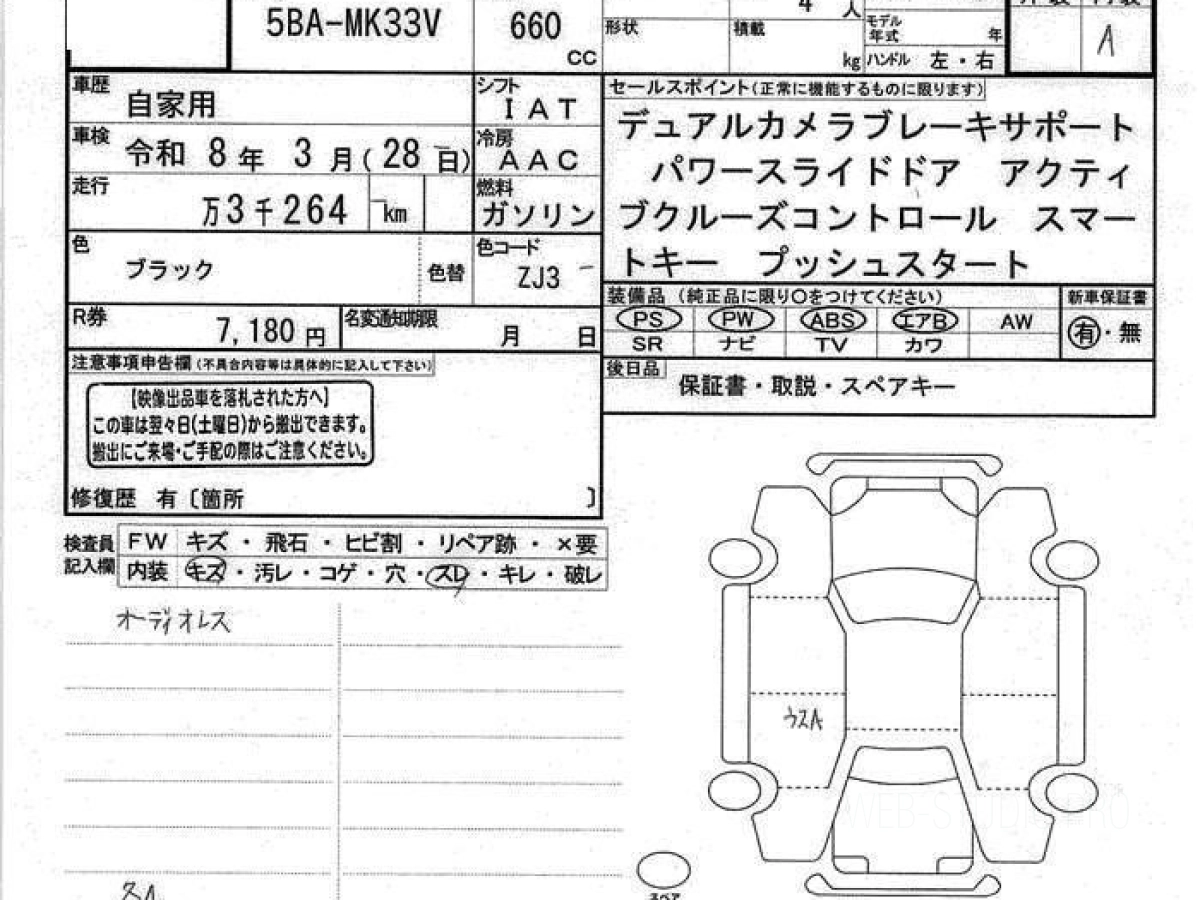 5BA-MK33V
660
cc
形状
4 人
積載
kg
モデル
年式
年
ハンドル 左・右
A
車歴
自家用
シフト
IAT
車検
令和 8 年 3 月(28 日)
冷房
AAC
走行
万3千264 km
燃料
ガソリン
色
ブラック
色替
色コード
ZJ3
R券
7,180 円
名変通知期限
月 日
セールスポイント(正常に機能するものに限ります)
デュアルカメラブレーキサポート
パワースライドドア アクティ
ブクルーズコントロール スマー
トキー プッシュスタート
装備品 (純正品に限り○をつけてください)
新車保証書
PS PW ABS エアB AW
SR ナビ TV カワ
有・無
後日品
保証書・取説・スペアキー
注意事項申告欄(不具合内容等は具体的に記入して下さい)
【映像出品車を落札された方へ】
この車は翌々日(土曜日)から搬出できます。
搬出にご来場・ご手配の際はご注意ください。
修復歴 有〔箇所 〕
検査員
記入欄
FW キズ・飛石・ヒビ割・リペア跡・×要
内装 キズ・汚レ・コゲ・穴・スレ・キレ・破レ
オーディオレス
ウスA
WEB-STUDIO.PRO